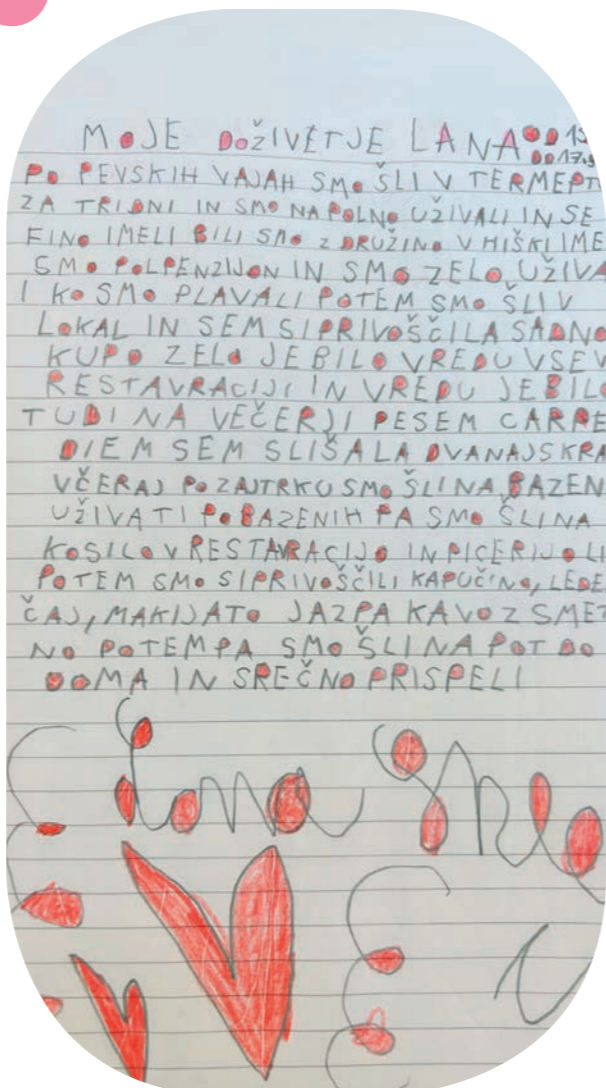 MOJE DOŽIVETJE LANA OD 15
DO 17.9
PO PEVSKIH VAJAH SMO ŠLI V TERMEPT
ZA TRIDNI IN SMO NAPOLNO UŽIVALI IN SE
FINO IMELI BILI SMO Z DRUŽINO V HIŠKI IME
SMO POLPENZIJON IN SMO ZELO UŽIVA
I KO SMO PLAVALI POTEM SMO ŠLI V
LOKAL IN SEM SI PRIVOŠČILA SADNO
KUPO ZELO JE BILO VREDU VSE V
RESTAVRACIJI IN VREDU JE BILO
TUDI NA VEČERJI PESEM CARPE
DIEM SEM SLIŠALA DVANAJSKRA
VČERAJ PO ZAJTRKU SMO ŠLI NA BAZEN
UŽIVATI PO BAZENIH PA SMO ŠLI NA
KOSILO V RESTAVRACIJO IN PICERIJO LI
POTEM SMO SI PRIVOŠČILI KAPUČINO, LEDE
ČAJ, MAKIJATO JAZ PA KAVO Z SMET
NO POTEM PA SMO ŠLI NA POT DO
DOMA IN SREČNO PRISPELI
Lana